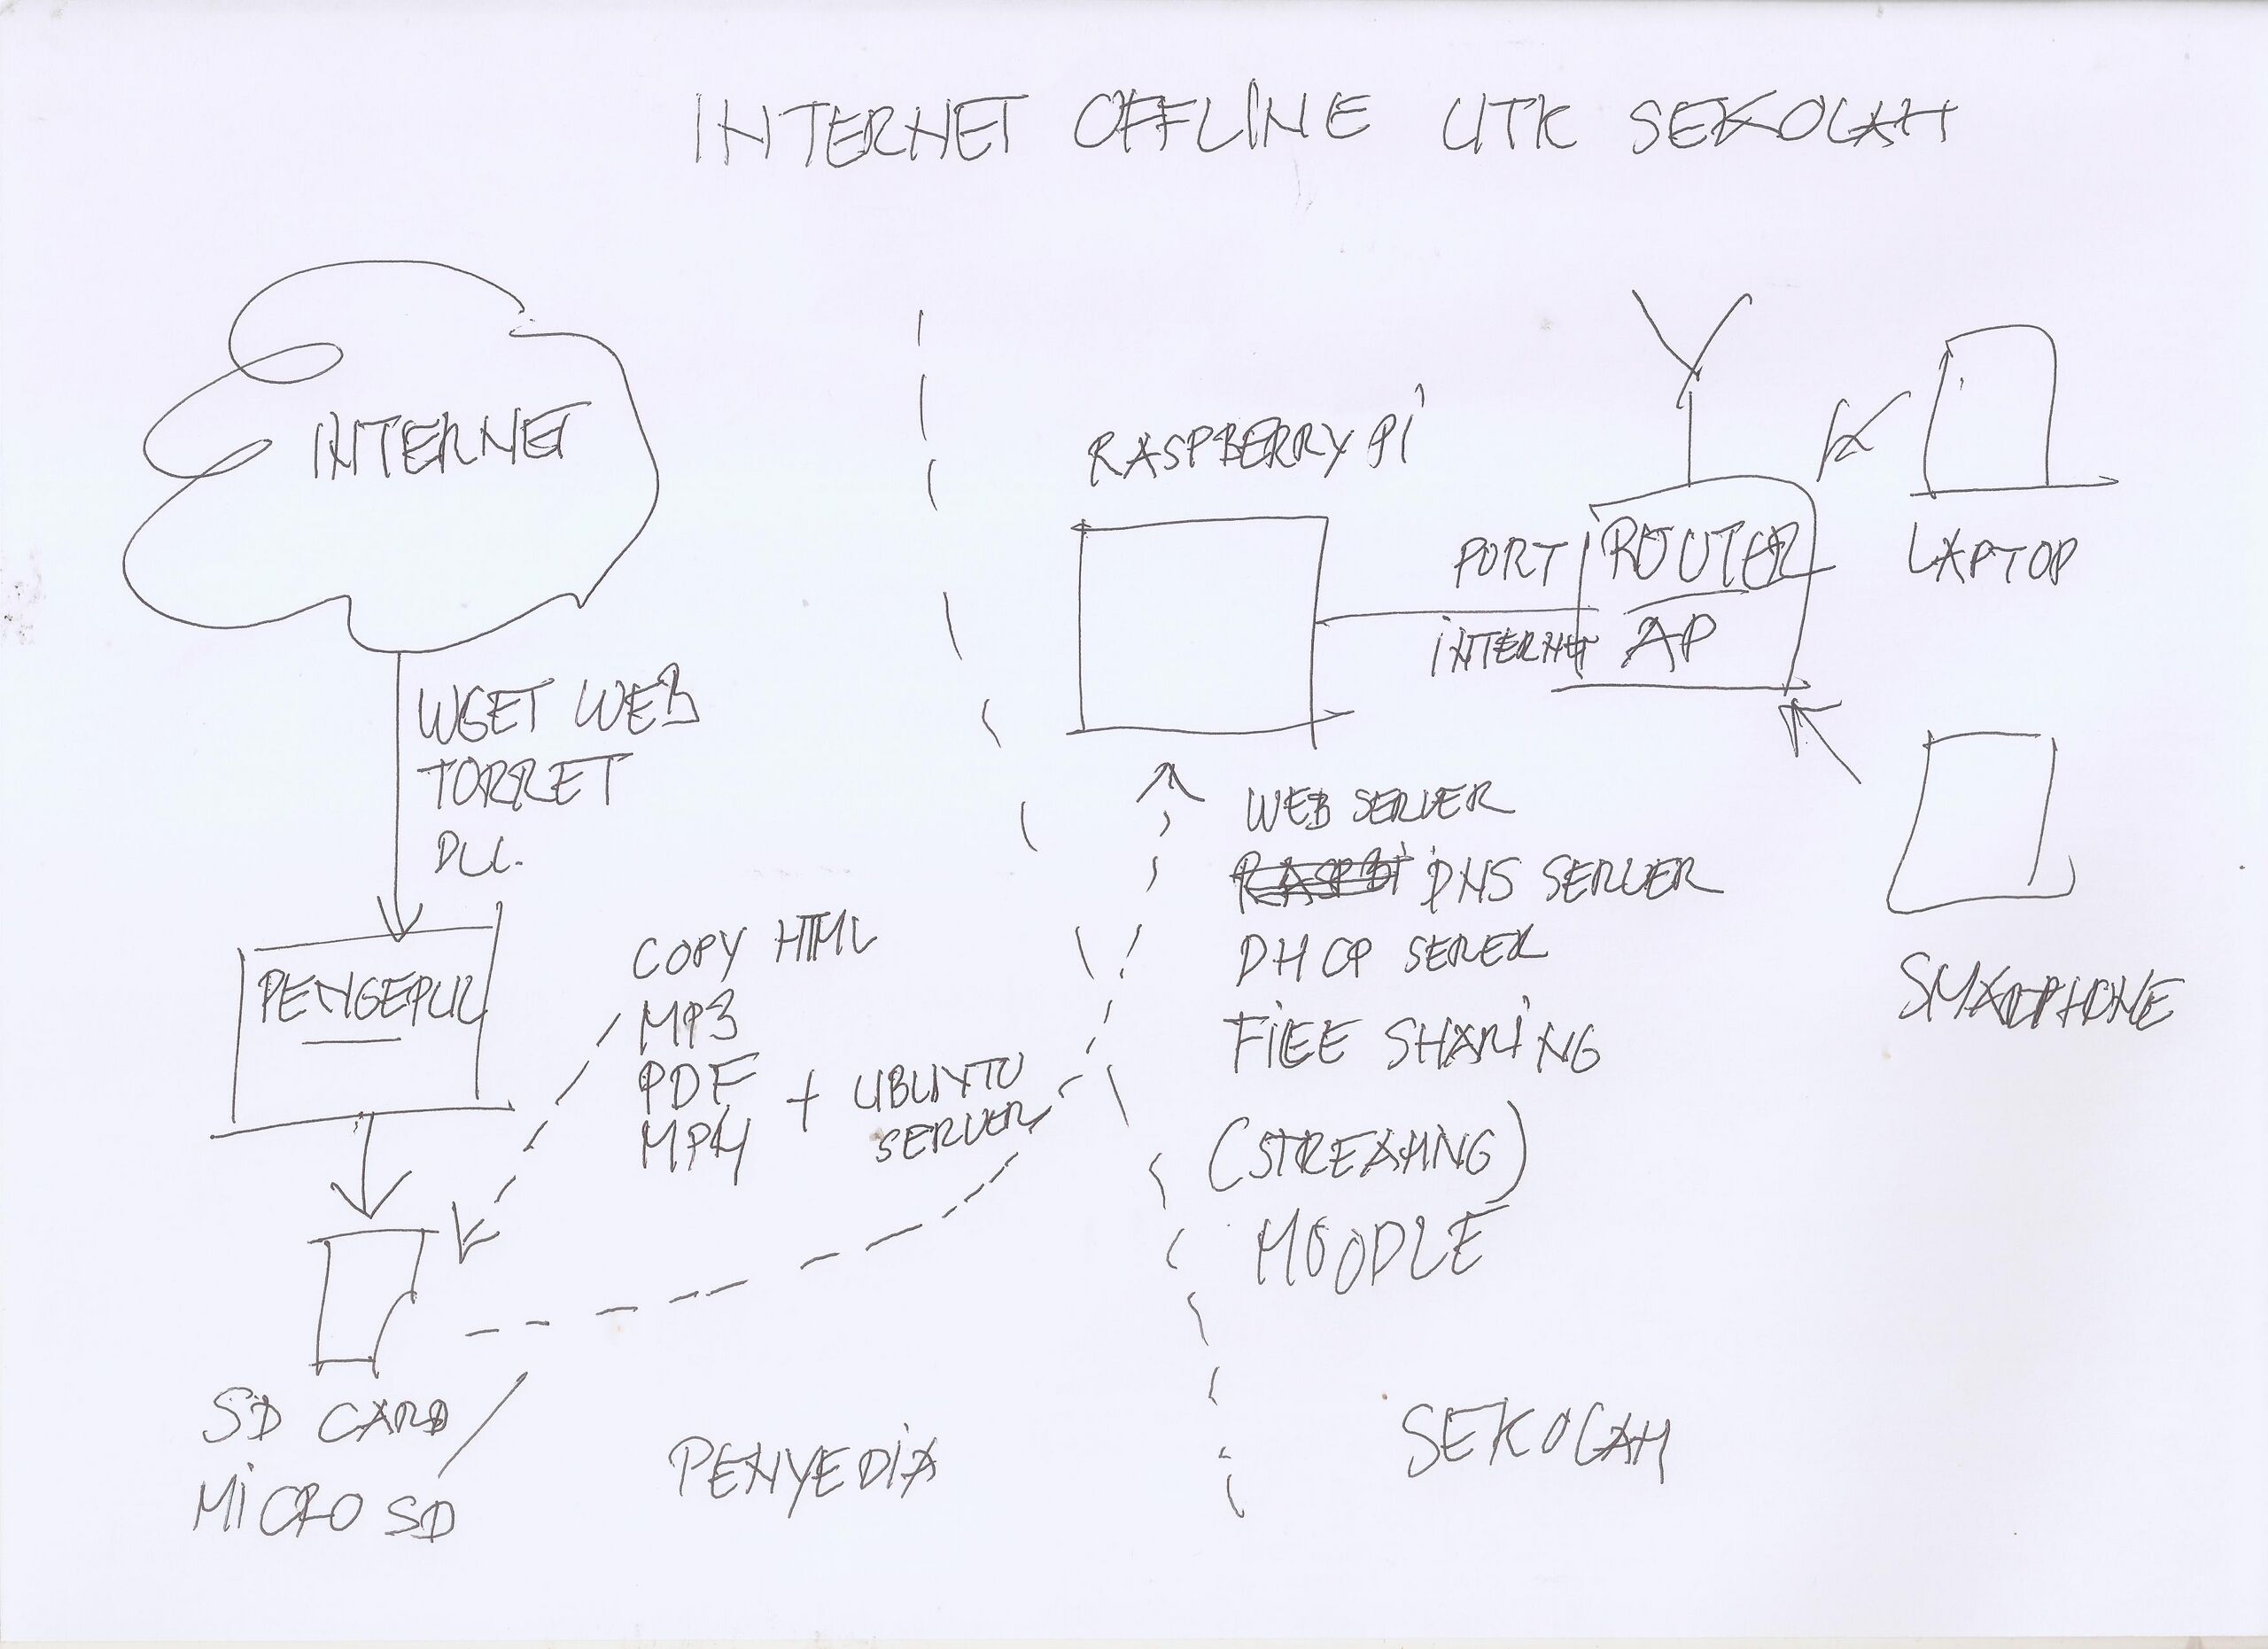 INTERNET OFFLINE UTK SEKOLAH
INTERNET
WGET WEB
TORRET
DLL.
PENGEPUL
COPY HTML
MP3
PDF
MP4
+ UBUNTU
SERVER
SD CARD /
MICRO SD
PENYEDIA
RASPBERRY PI
PORT
INTERNET
ROUTER
AP
LAPTOP
SMARTPHONE
WEB SERVER
RASPBI DNS SERVER
DHCP SERER
FILE SHARING
(STREAMING)
MOODLE
SEKOLAH